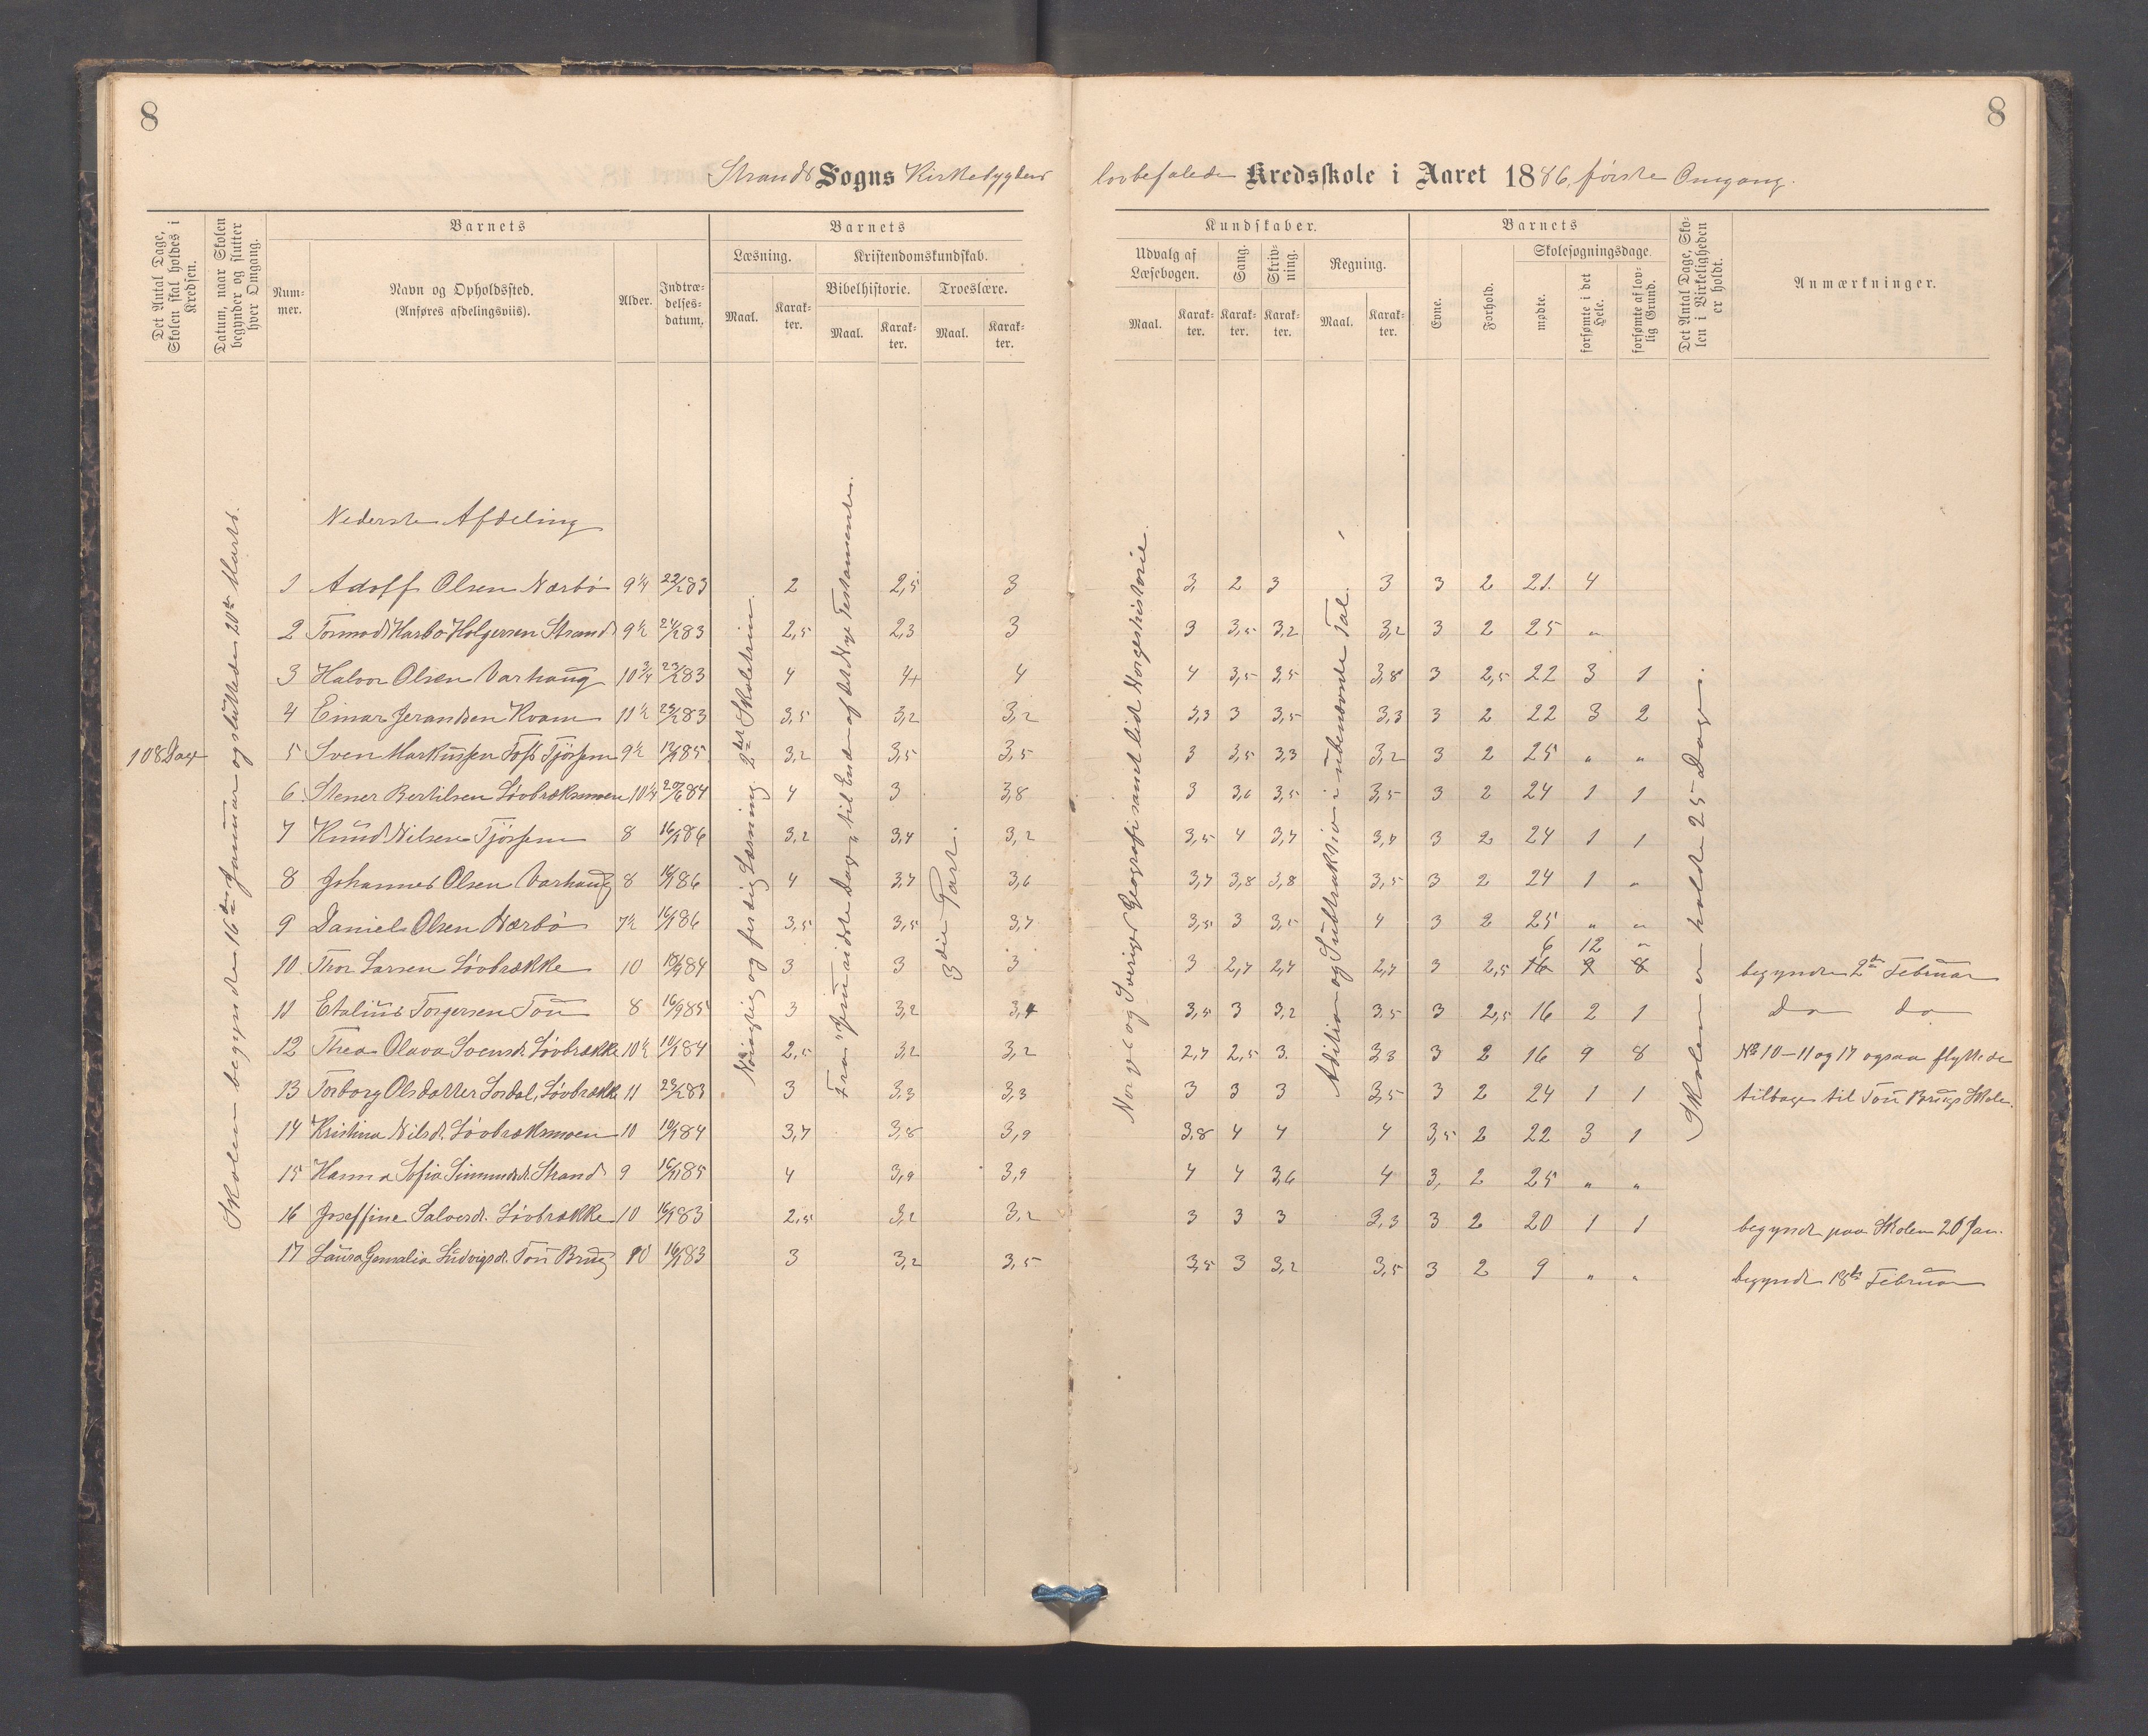 8
8
Strands Sogns Kirkebygdens lovbefalede Kredsskole i Aaret 1886, første Omgang.
Det Antal Dage, Skolen skal holdes i Kredsen.
Datum, naar Skolen begynder og slutter hver Omgang.
Barnets
Num-mer.
Navn og Opholdssted.
(Anføres afdelingsviis).
Alder.
Indtræ-delses-datum.
Barnets
Læsning.
Maal.
Karak-ter.
Kristendomskundskab.
Bibelhistorie.
Maal.
Karak-ter.
Troeslære.
Maal.
Karak-ter.
Kundskaber.
Udvalg af Læsebogen.
Maal.
Karak-ter.
Sang.
Karak-ter.
Skriv-ning.
Karak-ter.
Regning.
Maal.
Karak-ter.
Barnets
Evne.
Forhold.
Skolesøgningsdage.
mødte.
forsømte i det Hele.
forsømte af lov-lig Grund.
Det Antal Dage, Sko-len i Virkeligheden er holdt.
Anmærkninger.
108 Dage
Skolen begyndte 16de Januar og sluttede 20de Marts.
Nøiagtig og færdig Læsning 2det Skoletrin.
Fra "Jesu sidste Dage" til Enden af det Nye Testamente.
3die Part.
Norges og Sveriges Geografi samt lidt Norgeshistorie.
Adition og Subtraktion i ubenævnte Tal.
Skolen er holdt 25 Dage.
Nederste Afdeling
1 Adolf Olsen Nærbø 9 1/4 22/1 83 2 2,5 3 3, 2 3 3 3 2 21. 4
2 Tormod Harbo Holgersen Strand 9 1/2 83 2,5 2,3 3 3 3,5 3,2 3,2 3 2 25 "
3 Halvor Olsen Varhaug 10 3/4 83 4 4 4 4 3,5 3,5 3,8 3 2,5 22 3 1
4 Einar Kvam 11 1/2 83 3,5 3,2 3,2 3,3 3 3,5 3,3 3 2 22 3 2
5 Sven Markussen Tjøssem 9 1/2 85 3,2 3,5 3,5 3 3,5 3,3 3,2 3 2 25 " "
6 Stener Bertilsen Løvbrækmoen 10 1/4 84 4 3 3,8 3 3,6 3,5 3,5 3 2 24 1 1
7 Knud Nilsen Tjøssem 8 16/1 86 3,2 3,4 3,2 3,5 4 3,7 3,7 3 2 24 1 1
8 Johannes Olsen Varhaug 8 16/1 86 4 3,7 3,6 3,7 3,8 3,8 3,5 3 2 24 1 "
9 Daniel Olsen Nærbø 7 1/2 16/1 86 3,5 3,5 3,7 3,5 3 3,5 4 3 2 25 " "
6 12 "
10 Thor Larsen Løvbrække 10 84 3 3 3 3 2,7 2,7 2,7 3 2,5 16 9 8 begyndte 2de Februar
11 Etalius Torgersen Tou 8 16/9 85 3 3,2 3,4 3,5 3 3,2 3,5 3 2,5 16 2 1 do do
12 Thea Olava Svensd. Løvbrække 10 1/2 84 2,5 3,2 3,2 2,7 2,5 3. 3,3 3 2 16 9 8 No 10-11 og 17 ogsaa flyttede
13 Torborg Olsdatter Løvbrække 11 83 3 3,3 3,3 3 3 3 3,5 3 2 24 1 1 tilbage til Tou Brugs Skole.
14 Kristina Nilsd. Løvbrækmoen 10 84 3,7 3,8 3,9 3,8 4 4 4 3,5 2 22 3 1
15 Hanna Sofia Strand 9 85 4 3,9 3,9 4 4 3,6 4 3, 2 25 " "
16 Joseffine Salvesd. Løvbrække 10 83 2,5 3,2 3,2 3 3 3 3,3 3 2 20 1 1 begyndt paa Skolen 26 Jan.
17 Laura Ludvigsd. Tou Brug 10 83 3 3,2 3,5 3,5 3 3,2 3,5 3 2 9 " " begyndte 18de Februar